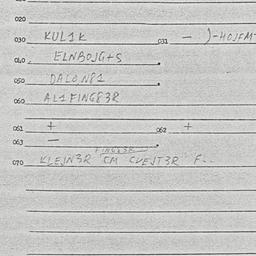 020
030 KUL1K 031 - )-HOJFM
040 ELNBOJG+S
050 DALON81
060 AL1FING83R
061 + 062 +
063 -
FING83R
070 KLEJN3R CM CVEJT3R F.